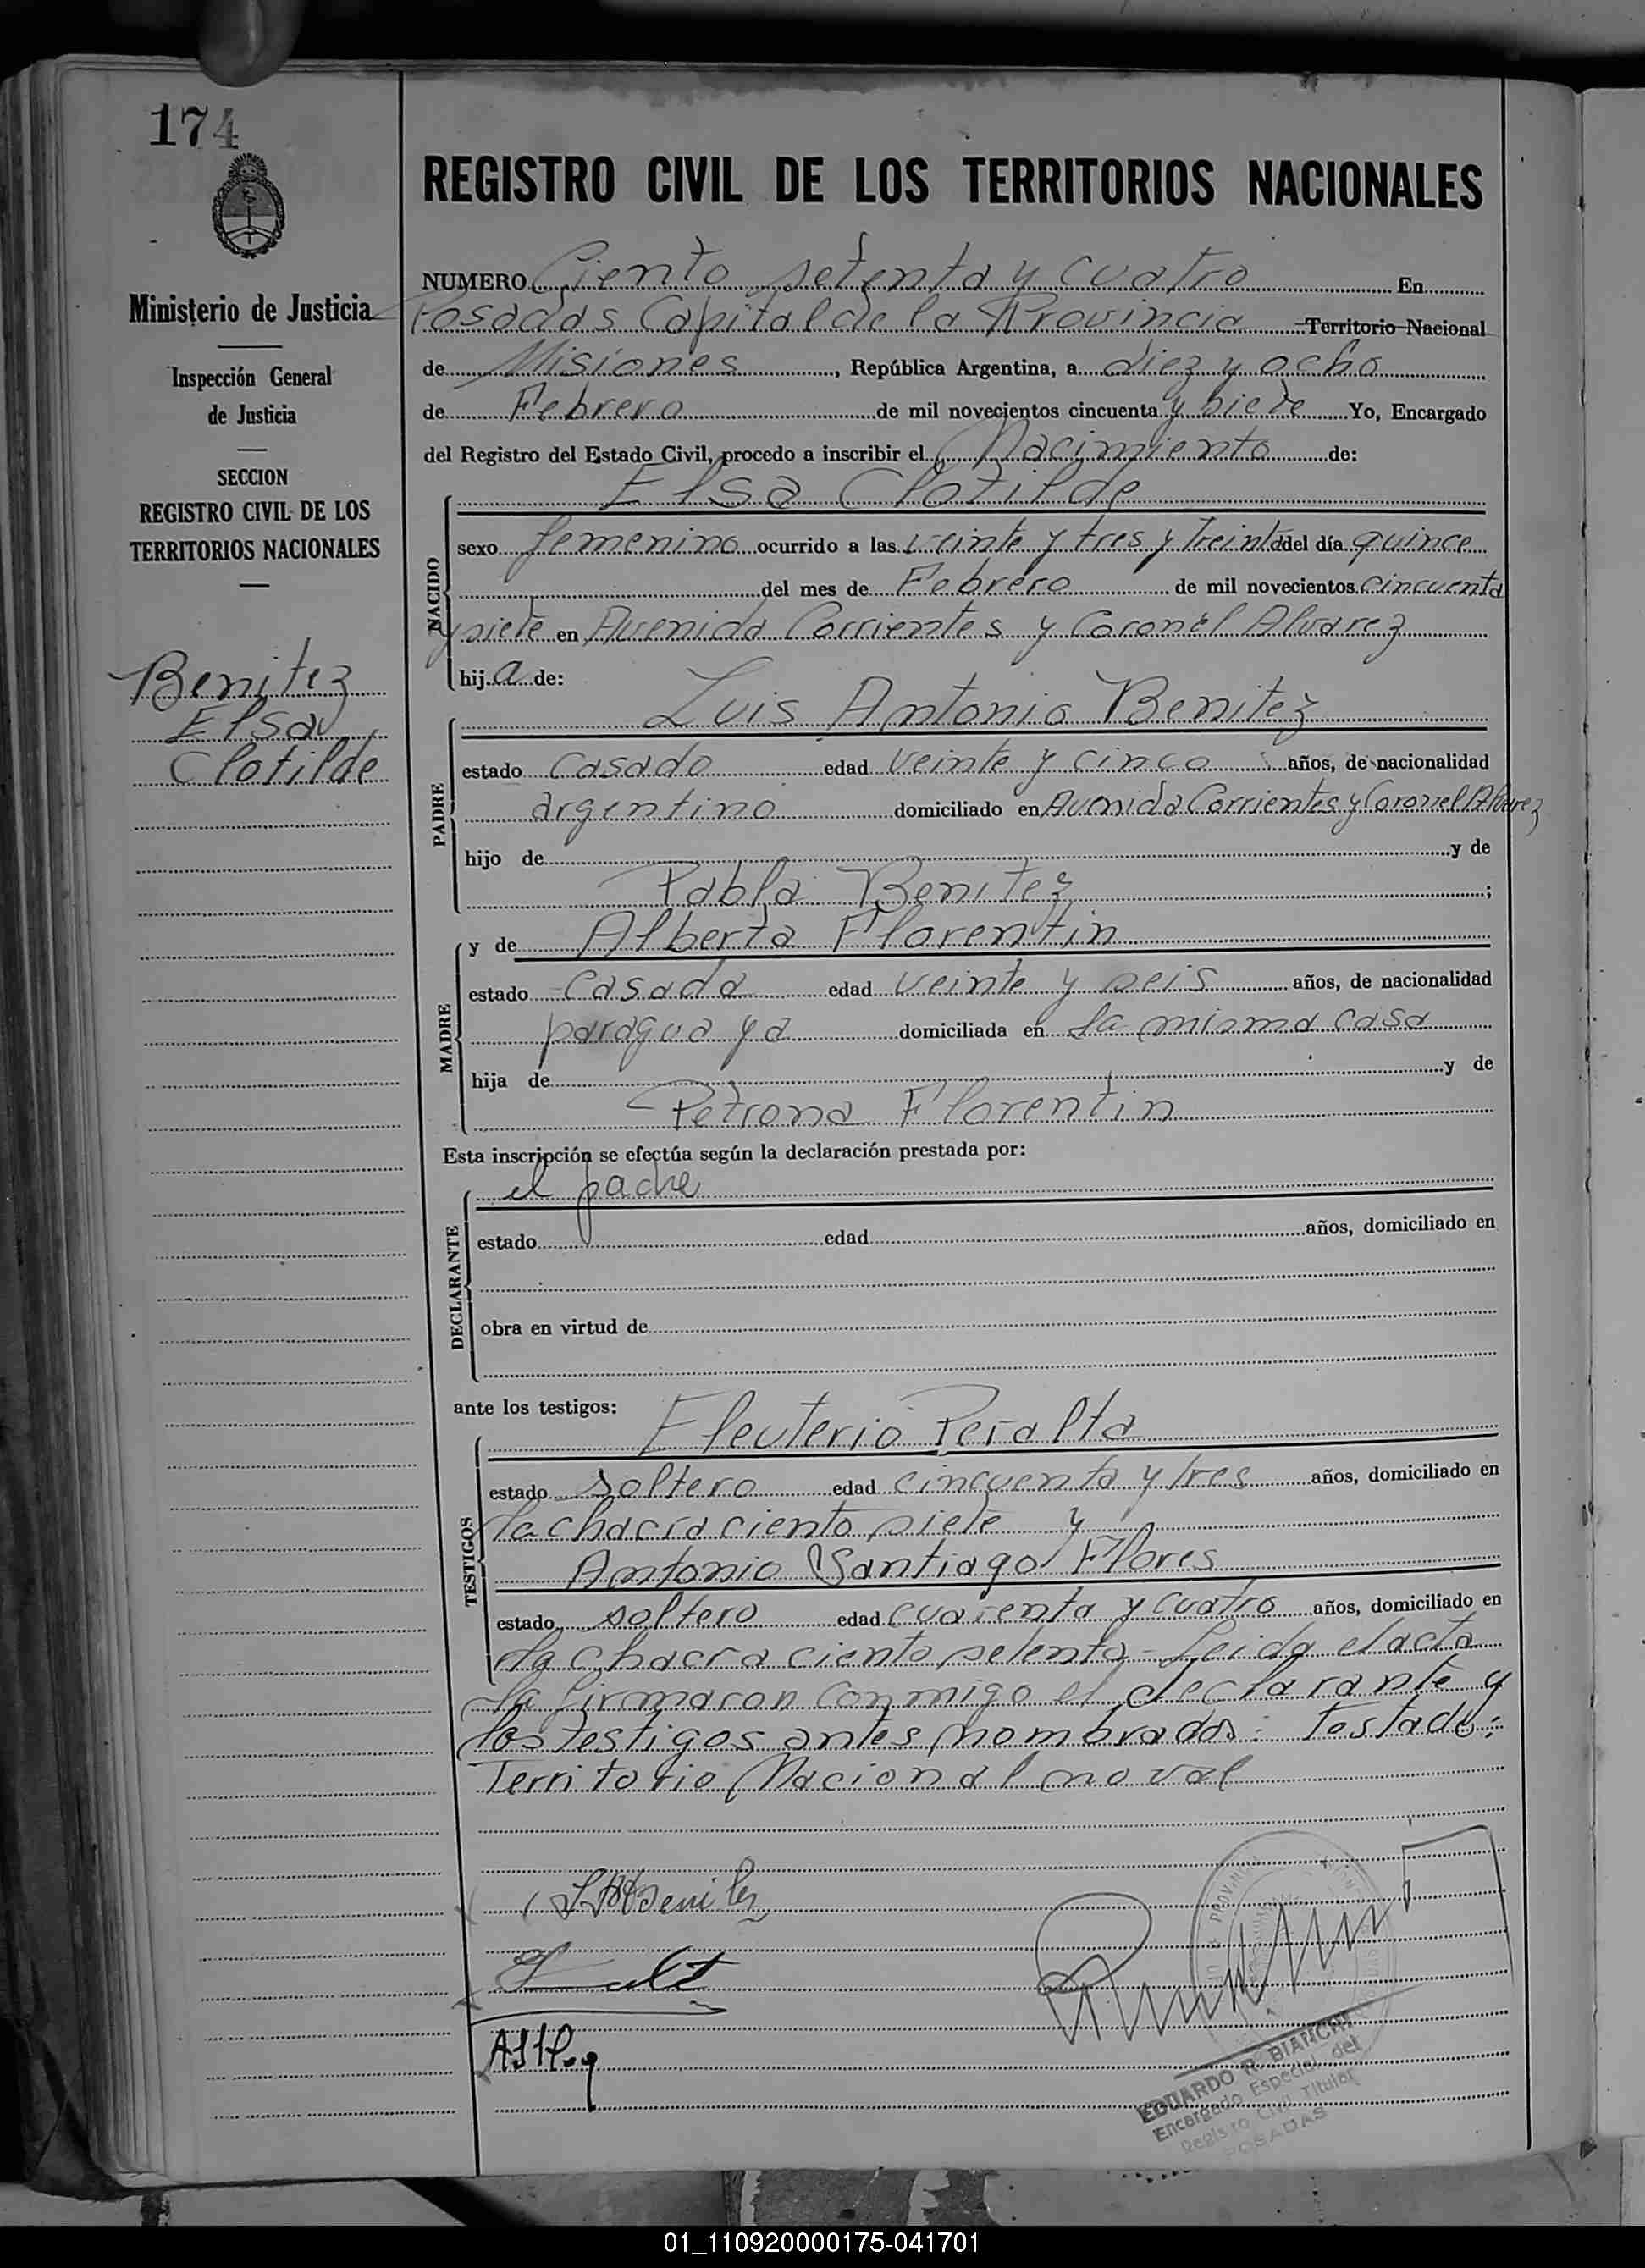 174
Ministerio de Justicia
Inspección General
de Justicia
SECCION
REGISTRO CIVIL DE LOS
TERRITORIOS NACIONALES
Benitez
Elsa
Clotilde
REGISTRO CIVIL DE LOS TERRITORIOS NACIONALES
NUMERO Ciento setenta y cuatro En
Posadas Capital de la Provincia Territorio Nacional
de Misiones, República Argentina, a diez y ocho
de Febrero de mil novecientos cincuenta y siete Yo, Encargado
del Registro del Estado Civil, procedo a inscribir el Nacimiento de:
Elsa Clotilde
NACIDO
sexo femenino ocurrido a las veinte y tres y treinta del día quince
del mes de Febrero de mil novecientos cincuenta
y siete en Avenida Corrientes y Coronel Alvarez
hij a de:
Luis Antonio Benitez
PADRE
estado casado edad veinte y cinco años, de nacionalidad
argentino domiciliado en Avenida Corrientes y Coronel Alvarez
hijo de y de
Pabla Benitez ;
MADRE
y de Alberta Florentin
estado casada edad veinte y seis años, de nacionalidad
paraguaya domiciliada en la misma casa
hija de y de
Petrona Florentin
Esta inscripción se efectúa según la declaración prestada por:
DECLARANTE
el padre
estado edad años, domiciliado en
obra en virtud de
ante los testigos:
TESTIGOS
Eleuterio Peralta
estado soltero edad cincuenta y tres años, domiciliado en
la chacra ciento siete y
Antonio Santiago Flores
estado soltero edad cuarenta y cuatro años, domiciliado en
la chacra ciento setenta - Leida el acta
la firmaron conmigo el declarante y
los testigos antes nombrados: Testado:
Territorio Nacional no val
EDUARDO R. BIANCHI
Encargado Especial del
Registro Civil Titular
POSADAS
01_110920000175-041701